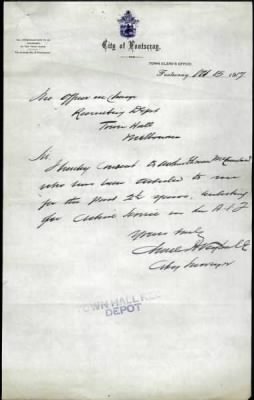 ALL COMMUNICATIONS TO BE
ADDRESSED
TO THE TOWN CLERK
City of Footscray.
TOWN CLERK'S OFFICE,
Footscray, Oct 15, 1917
The Officer in Charge
Recruiting Depot
Town Hall
Melbourne
Sir,
I hereby consent to Arthur
who has been articled to me
for the past 2½ years, enlisting
for Active Service in the A.I.F.
Yours truly
City Surveyor
TOWN HALL
DEPOT